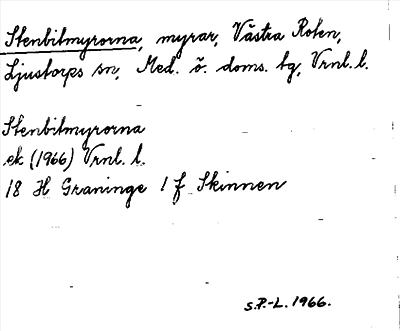 Stenbitmyrorna, myrar, Västra Roten,
Ljustorps sn, Med. ö. doms. tg, Vrnl. l.
Stenbitmyrorna
ek (1966) Vrnl. l.
18 H Graninge 1 f Skinnen
S.P.-L. 1966.